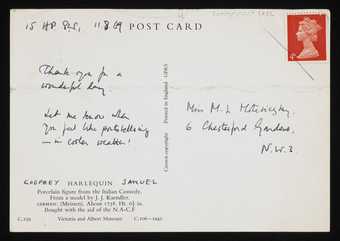 15 HP Gds, 11.8.69
POST CARD
Thank you for a
wonderful day
Let me know when
you feel like portobelloing
— in cooler weather!
GODFREY HARLEQUIN SAMUEL
Porcelain figure from the Italian Comedy.
From a model by J. J. Kaendler.
GERMAN (Meissen). About 1738. Ht. 6½ in.
Bought with the aid of the N.A.C.F
C.239
Victoria and Albert Museum
C.106—1945
Printed in England
Crown copyright
Miss M. L.
6 Chesterford Gardens,
N.W.3.